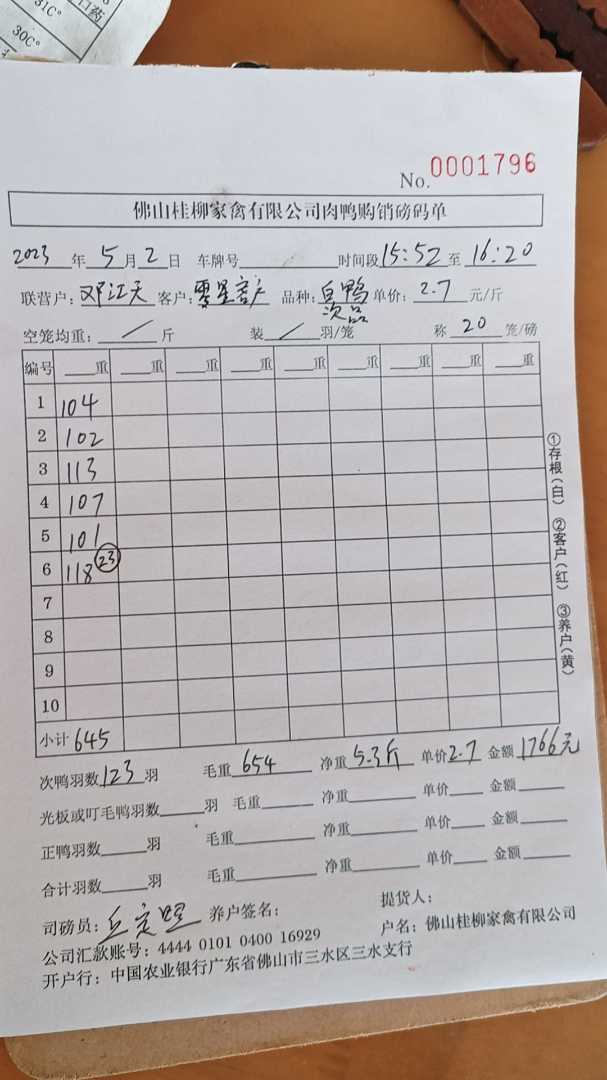 31C°
口药
30C°
No. 0001796
佛山桂柳家禽有限公司肉鸭购销磅码单
2023年5月2日 车牌号 时间段15:52至16:20
联营户：邓江天 客户：零星客户 品种：白鸭次品 单价：2.7元/斤
空笼均重：／斤 装／羽/笼 称20笼/磅
编号 重 重 重 重 重 重 重 重
1 104
2 102
3 113
4 107
5 101
6 118 23
7
8
9
10
小计 645
①存根(白) ②客户(红) ③养户(黄)
次鸭羽数123羽 毛重654 净重5.3斤 单价2.7 金额1766元
光板或叮毛鸭羽数羽 毛重 净重 单价 金额
正鸭羽数羽 毛重 净重 单价 金额
合计羽数羽 毛重 净重 单价 金额
司磅员： 养户签名： 提货人：
公司汇款账号：4444 0101 0400 16929 户名：佛山桂柳家禽有限公司
开户行：中国农业银行广东省佛山市三水区三水支行